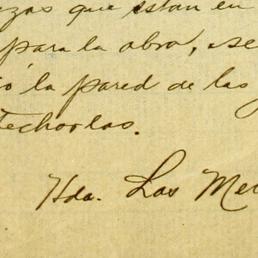 zas que estan en
para la obra, se
ó la pared de las
techarlas.
Hda. Las Me